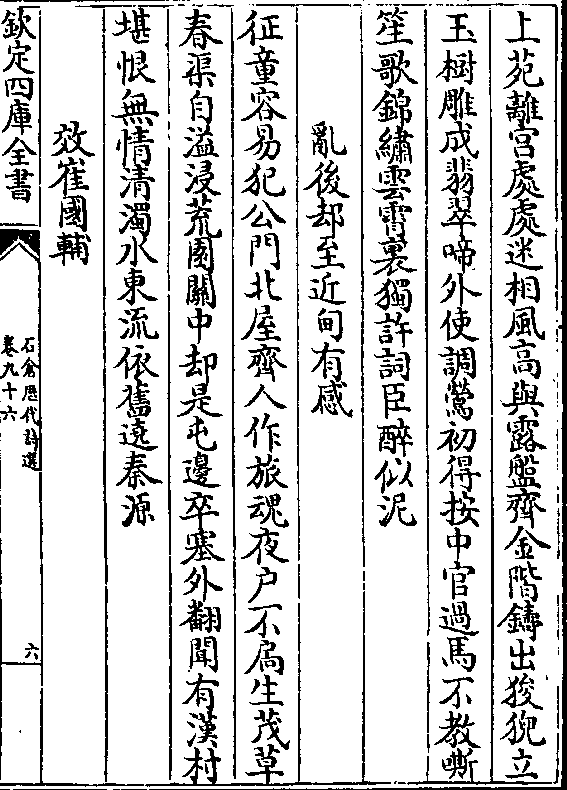 上苑離宫處處迷相風高與露盤齊金階鑄出狻猊立
玉樹雕成翡翠啼外使調鶯初得按中官過馬不教嘶
笙歌錦繡雲霄裏獨許詞臣醉似泥
亂後却至近甸有感
征童容易犯公門北屋齊人作旅魂夜户不扃生茂草
春渠自溢浸荒園關中却是屯邊卒塞外翻聞有漢村
堪恨無情清濁水東流依舊遶秦源
效崔國輔
欽定四庫全書
石倉歷代詩選
卷九十六
六